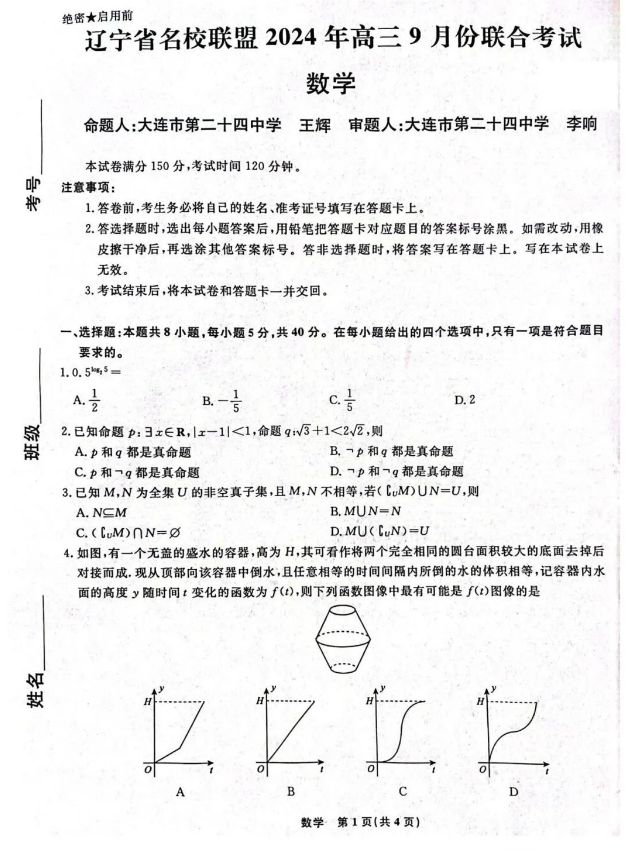 绝密★启用前
辽宁省名校联盟 2024 年高三 9 月份联合考试
数学
命题人:大连市第二十四中学 王辉 审题人:大连市第二十四中学 李响
本试卷满分 150 分,考试时间 120 分钟。
注意事项:
1. 答卷前,考生务必将自己的姓名、准考证号填写在答题卡上。
2. 答选择题时,选出每小题答案后,用铅笔把答题卡对应题目的答案标号涂黑。如需改动,用橡
皮擦干净后,再选涂其他答案标号。答非选择题时,将答案写在答题卡上。写在本试卷上
无效。
3. 考试结束后,将本试卷和答题卡一并交回。
一、选择题:本题共 8 小题,每小题 5 分,共 40 分。在每小题给出的四个选项中,只有一项是符合题目
要求的。
1. 0.5^{log₂5}=
A. 1/2 B. -1/5 C. 1/5 D. 2
2. 已知命题 p:∃x∈R,|x-1|<1,命题 q:√3+1<2√2,则
A. p 和 q 都是真命题 B. ¬p 和 q 都是真命题
C. p 和 ¬q 都是真命题 D. ¬p 和 ¬q 都是真命题
3. 已知 M,N 为全集 U 的非空真子集,且 M,N 不相等,若(∁UM)∪N=U,则
A. N⊆M B. M∪N=N
C. (∁UM)∩N=∅ D. M∪(∁UN)=U
4. 如图,有一个无盖的盛水的容器,高为 H,其可看作将两个完全相同的圆台面积较大的底面去掉后
对接而成. 现从顶部向该容器中倒水,且任意相等的时间间隔内所倒的水的体积相等,记容器内水
面的高度 y 随时间 t 变化的函数为 f(t),则下列函数图像中最有可能是 f(t)图像的是
y y y y
H H H H
O t O t O t O t
A B C D
数学 第 1 页(共 4 页)
考号
班级
姓名